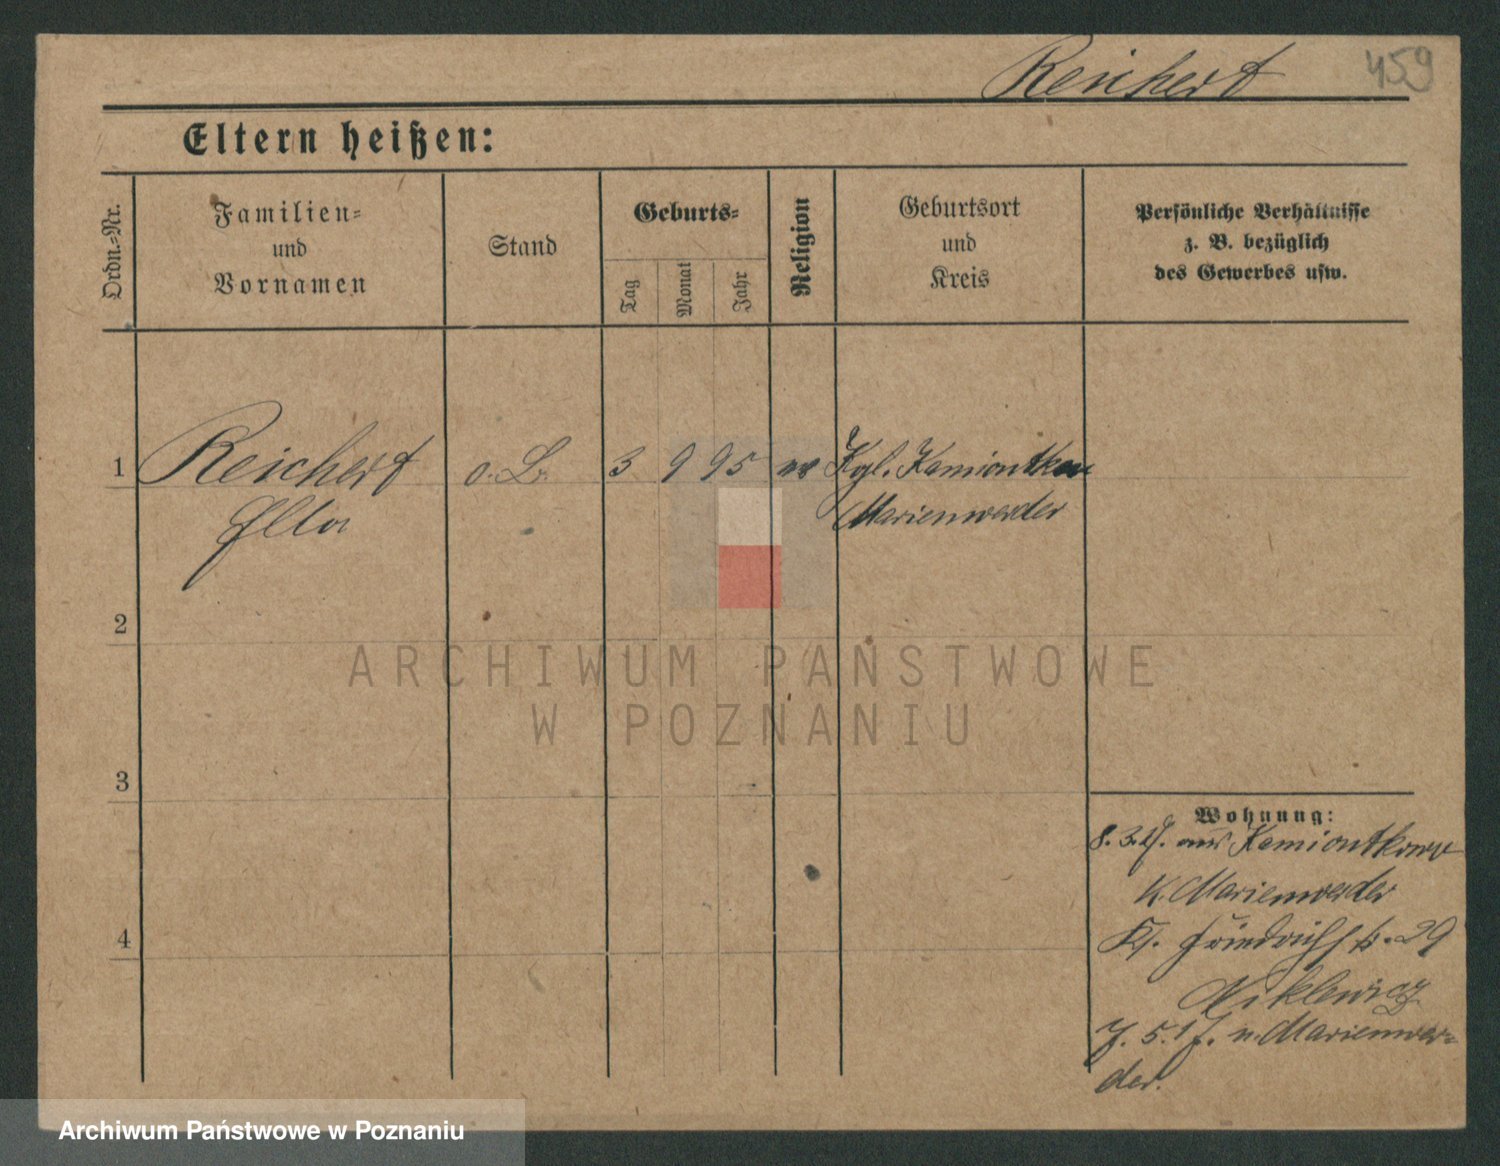 Reichert 459
Eltern heißen:
Ordn.=Nr.
Familien=
und
Vornamen
Stand
Geburts=
Tag
Monat
Jahr
Religion
Geburtsort
und
Kreis
Persönliche Verhältnisse
z. B. bezüglich
des Gewerbes usw.
1 Reichert o. L. 3 9 95 ev Kgl. Kamiontken
Ella Marienwerder
2
3
4
ARCHIWUM PAŃSTWOWE
W POZNANIU
Wohnung:
8. 3. 17. aus Kamiontken
K. Marienwerder
Friedrichstr. 29
Niklewicz
5. 17. n. Marienwer=
der.
Archiwum Państwowe w Poznaniu